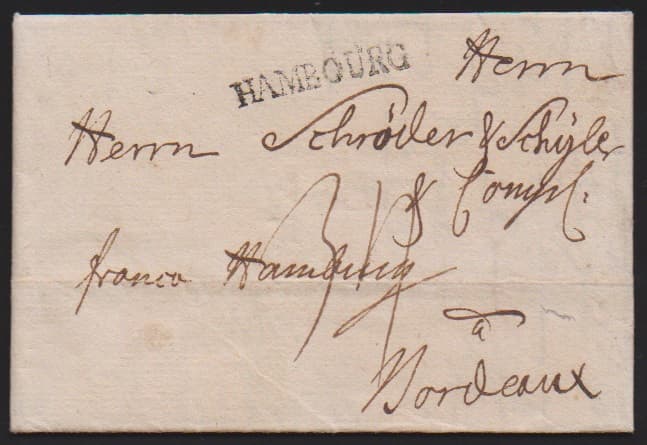 HAMBOURG
Herrn
Herrn Schröder & Schÿler
& Comp.
franco Hamburg
a
Bordeaux